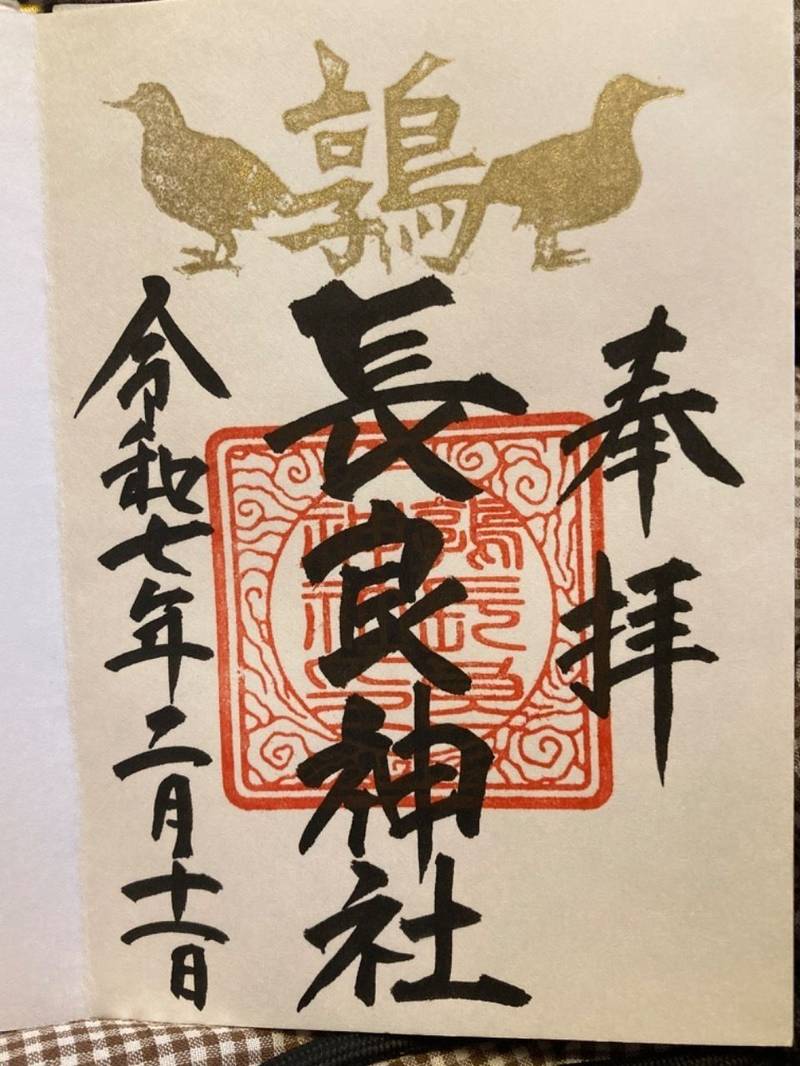 鶉
奉拝
長良神社
令和七年二月十一日
鶉長良
神社之